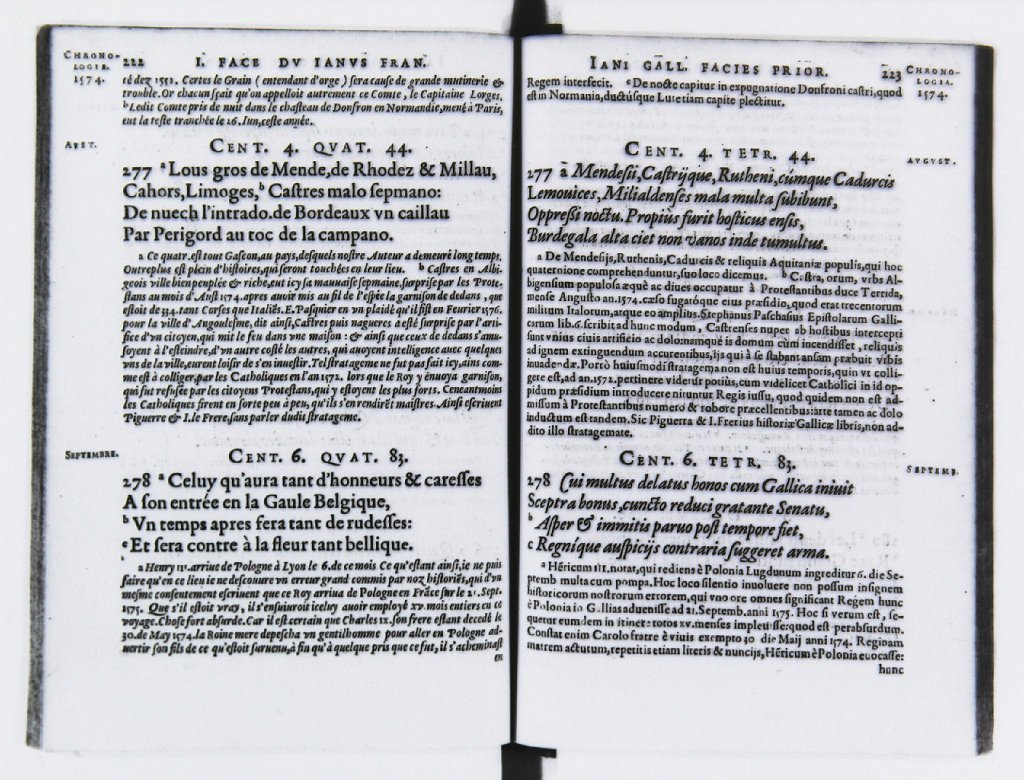 CHRONO-
LOGIE.
1574.
222 I. FACE DV IANVS FRAN.
ré dez 1552. Certes le Grain (entendant d'orge) sera cause de grande mutinerie &
trouble. Or chacun sçait qu'on appelloit autrement ce Comte, le Capitaine Lorges,
ᵇLedit Comte pris de nuit dans le chasteau de Donfron en Normandie, mené à Paris,
eut la teste tranchée le 26. Iun, ceste année.
AVST.
CENT. 4. QVAT. 44.
277 ᵃLous gros de Mende, de Rhodez & Millau,
Cahors, Limoges, ᵇCastres malo sepmano:
De nuech l'intrado. de Bordeaux vn caillau
Par Perigord au toc de la campano.
a Ce quatr. est tout Gascon, au pays, desquels nostre Auteur a demeuré long temps,
Outreplus est plein d'histoires, qui seront touchées en leur lieu. ᵇ Castres en Albi-
geois ville bien peuplée & riche, eut icy sa mauuaise sepmaine, surprise par les Prote-
stans au mois d'Aust 1574. apres auoir mis au fil de l'espée la garnison de dedans, que
estoit de 334. tant Corses que Italiẽs. E. Pasquier en vn plaidé qu'il fist en Feurier 1576.
pour la ville d'Angoulesme, dit ainsi, Castres puis nagueres a esté surprise par l'arti-
fice d'vn citoyen, qui mit le feu dans vne maison: & ainsi que ceux de dedans s'amu-
soyent à l'esteindre, d'vn autre costé les autres, qui auoyent intelligence auec quelques
vns de la ville, eurent loisir de s'en inuestir. Tel stratageme ne fut pas fait icy, ains com-
me est à colliger, par les Catholiques en l'an 1572. lors que le Roy y enuoya garnison,
qui fut refusée par les citoyens Protestans, qui y estoyent les plus forts. Ceneantmoins
les Catholiques firent en sorte peu à peu, qu'ils s'en rendirẽt maistres. Ainsi escriuent
Piguerre & I. le Frere, sans parler dudit stratageme.
SEPTEMBRE.
CENT. 6. QVAT. 83.
278 ᵃ Celuy qu'aura tant d'honneurs & caresses
A son entrée en la Gaule Belgique,
ᵇ Vn temps apres fera tant de rudesses:
ᶜ Et sera contre à la fleur tant bellique.
a Henry ɪv. arriue de Pologne à Lyon le 6. de ce mois Ce qu'estant ainsi, ie ne puis
faire qu'en ce lieu ie ne descouure vn erreur grand commis par noz historiẽs, qui d'vn
mesme consentement escriuent que ce Roy arriua de Pologne en Frãce sur le 21. Sept.
1575. Que s'il estoit vray, il s'ensuiuroit icelluy auoir employé xv. mois entiers en ce
voyage. Chose fort absurde. Car il est certain que Charles ɪx. son frere estant decedé le
30. de May 1574. la Roine mere depescha vn gentilhomme pour aller en Pologne ad-
uertir son fils de ce qu'estoit suruenu, à fin qu'à quelque pris que ce fut, il s'acheminast
en
IANI GALL. FACIES PRIOR. 223
CHRONO-
LOGIA.
1574.
Regem interfecit. ᵉ De nocte capitur in expugnatione Donfroni castri, quod
est in Normania, ductúsque Lutetiam capite plectitur.
AVGVST.
CENT. 4. TETR. 44.
277 a Mendesii, Castrijque, Rutheni, cúmque Cadurcis
Lemouices, Milialdenses mala multa subibunt,
Oppressi noctu. Propiùs furit hosticus ensis,
Burdegala alta ciet non vanos inde tumultus.
a De Mendesijs, Ruthenis, Cadurcis & reliquis Aquitaniæ populis, qui hoc
quaternione comprehenduntur, suo loco dicemus. ᵇ Castra, orum, vrbs Al-
bigensium populosa æquè ac diues occupatur à Protestantibus duce Terrida,
mense Augusto an. 1574. cæso fugatóque eius præsidio, quod erat trecentorum
militum Italorum, atque eo amplius. Stephanus Paschasius Epistolarum Galli-
carum lib. 6. scribit ad hunc modum, Castrenses nuper ab hostibus intercepti
sunt vnius ciuis artificio ac dolo: namqué is domum cùm incendisset, reliquis
ad ignem extinguendum accurentibus, ijs qui à se stabant ansam præbuit vrbis
inuadendæ. Porrò huiusmodi stratagema non est huius temporis, quin vt colli-
gere est, ad an. 1572. pertinere videtur potius, cum videlicet Catholici in id op-
pidum præsidium introducere nituntur Regis iussu, quod quidem non est ad-
missum à Protestantibus numero & robore præcellentibus: arte tamen ac dolo
inductum est tandem. Sic Piguerra & I. Frerius historiæ Gallicæ libris, non ad-
dito illo stratagemate.
SEPTEMB.
CENT. 6. TETR. 83.
278 Cui multus delatus honos cum Gallica iniuit
Sceptra bonus, cuncto reduci gratante Senatu,
ᵇ Asper & immitis paruo post tempore fiet,
c Regníque auspicijs contraria suggeret arma.
a Hẽricum ɪɪɪ. notat, qui rediens è Polonia Lugdunum ingreditur 6. die Se-
ptemb multa cum pompa. Hoc loco silentio inuoluere non possum insignem
historicorum nostrorum errorem, qui vno ore omnes significant Regem hunc
è Polonia in Gallias aduenisse ad 21. Septemb. anni 1575. Hoc si verum est, se-
quetur eumdem in itinere totos xv. menses impleuisse: quod est perabsurdum.
Constat enim Carolo fratre è viuis exempto 30 die Maij anni 1574. Reginam
matrem actutum, repetitis etiam literis & nuncijs, Hẽricum è Polonia euocasse:
hunc